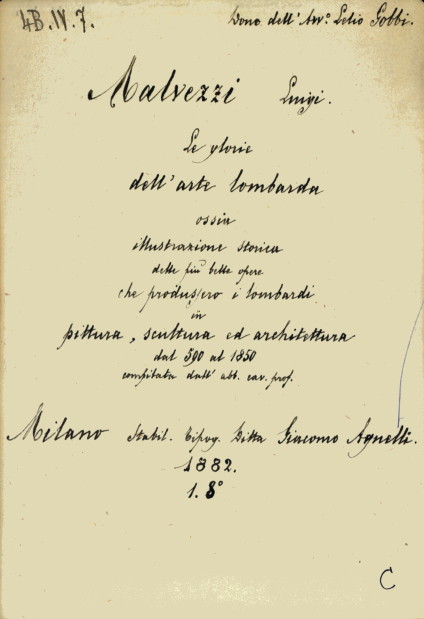 4B.IV.7.
Dono dell'Avv.° Lelio Gobbi.
Malvezzi Luigi.
Le glorie
dell'arte lombarda
ossia
illustrazione storica
delle più belle opere
che produssero i lombardi
in
pittura, scultura ed architettura
dal 590 al 1850
compilata dall'abb. cav. prof.
Milano Stabil. Tipog. Ditta Giacomo Agnelli.
1882.
1. 8°
C